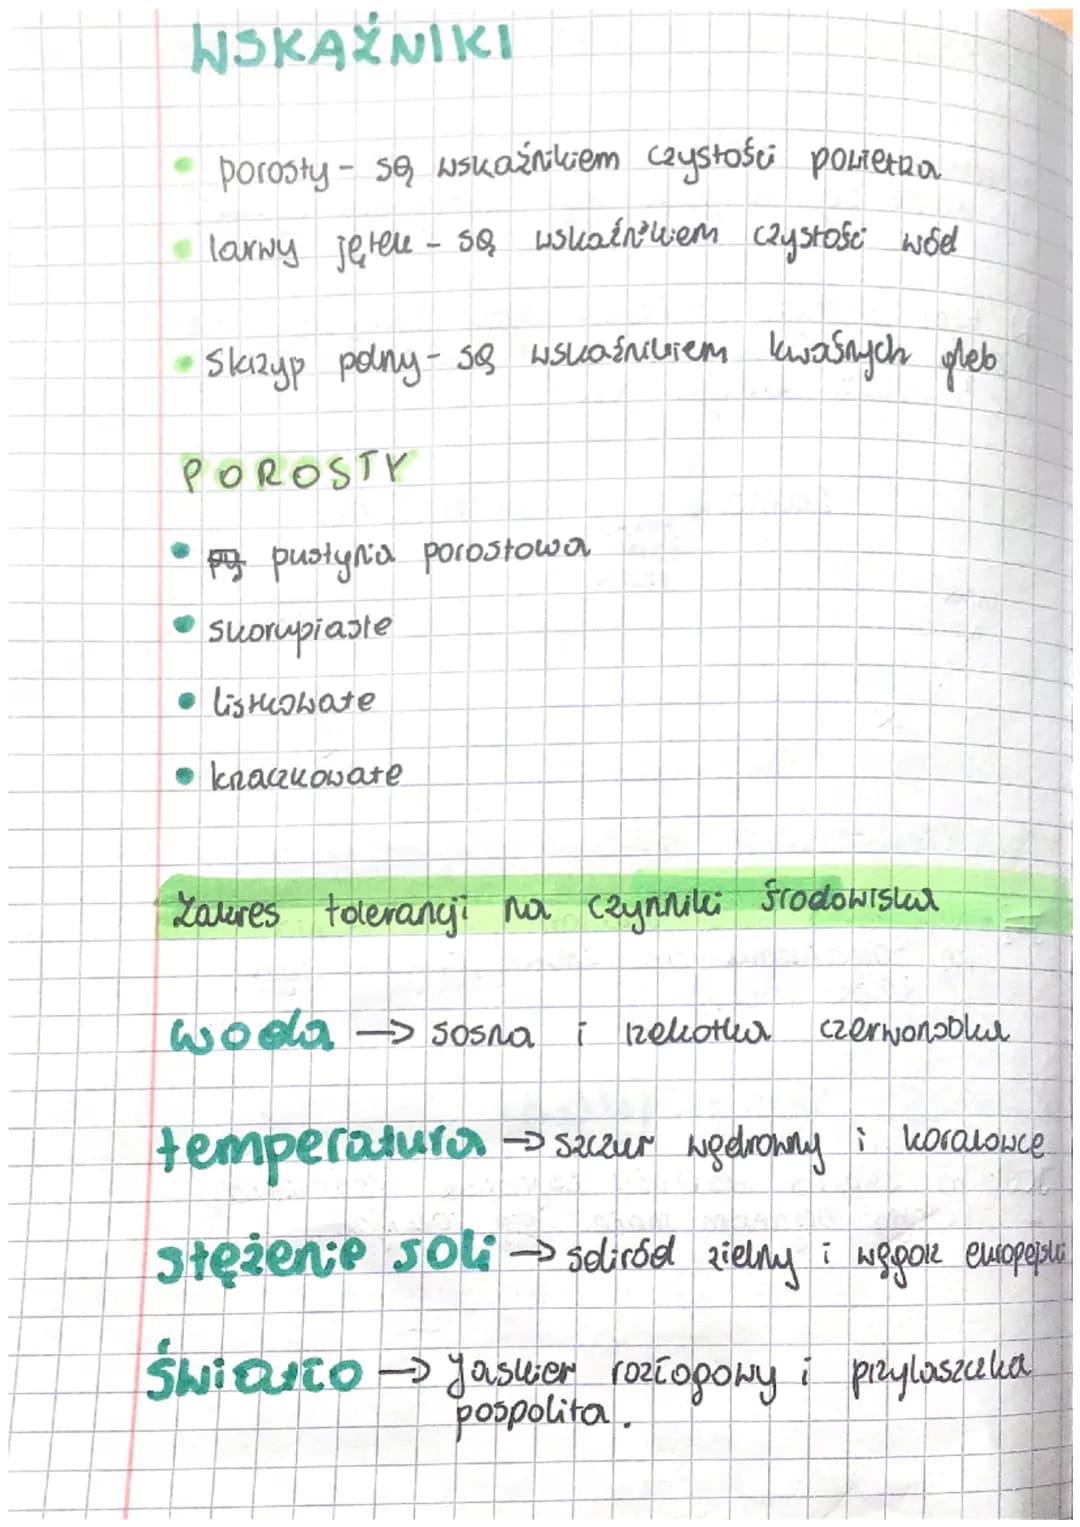 WSKAŹNIKI
porosty - są wskaźnikiem czystości powietrza
larwy jętek - są wskaźnikiem czystości wód
Skrzyp polny - są wskaźnikiem kwaśnych gleb
POROSTY
pustynia porostowa
skorupiaste
listkowate
krzaczkowate
Zakres tolerancji na czynniki środowiska
woda → sosna i rzekotka czerwonooka
temperatura → szczur wędrowny i koralowce
stężenie soli → soliród zielny i węgorz europejski
Światło → Jaskier rozłogowy i przylaszczka
pospolita.